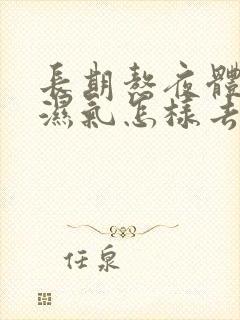 長期熬夜體
濕氣怎樣去
任泉